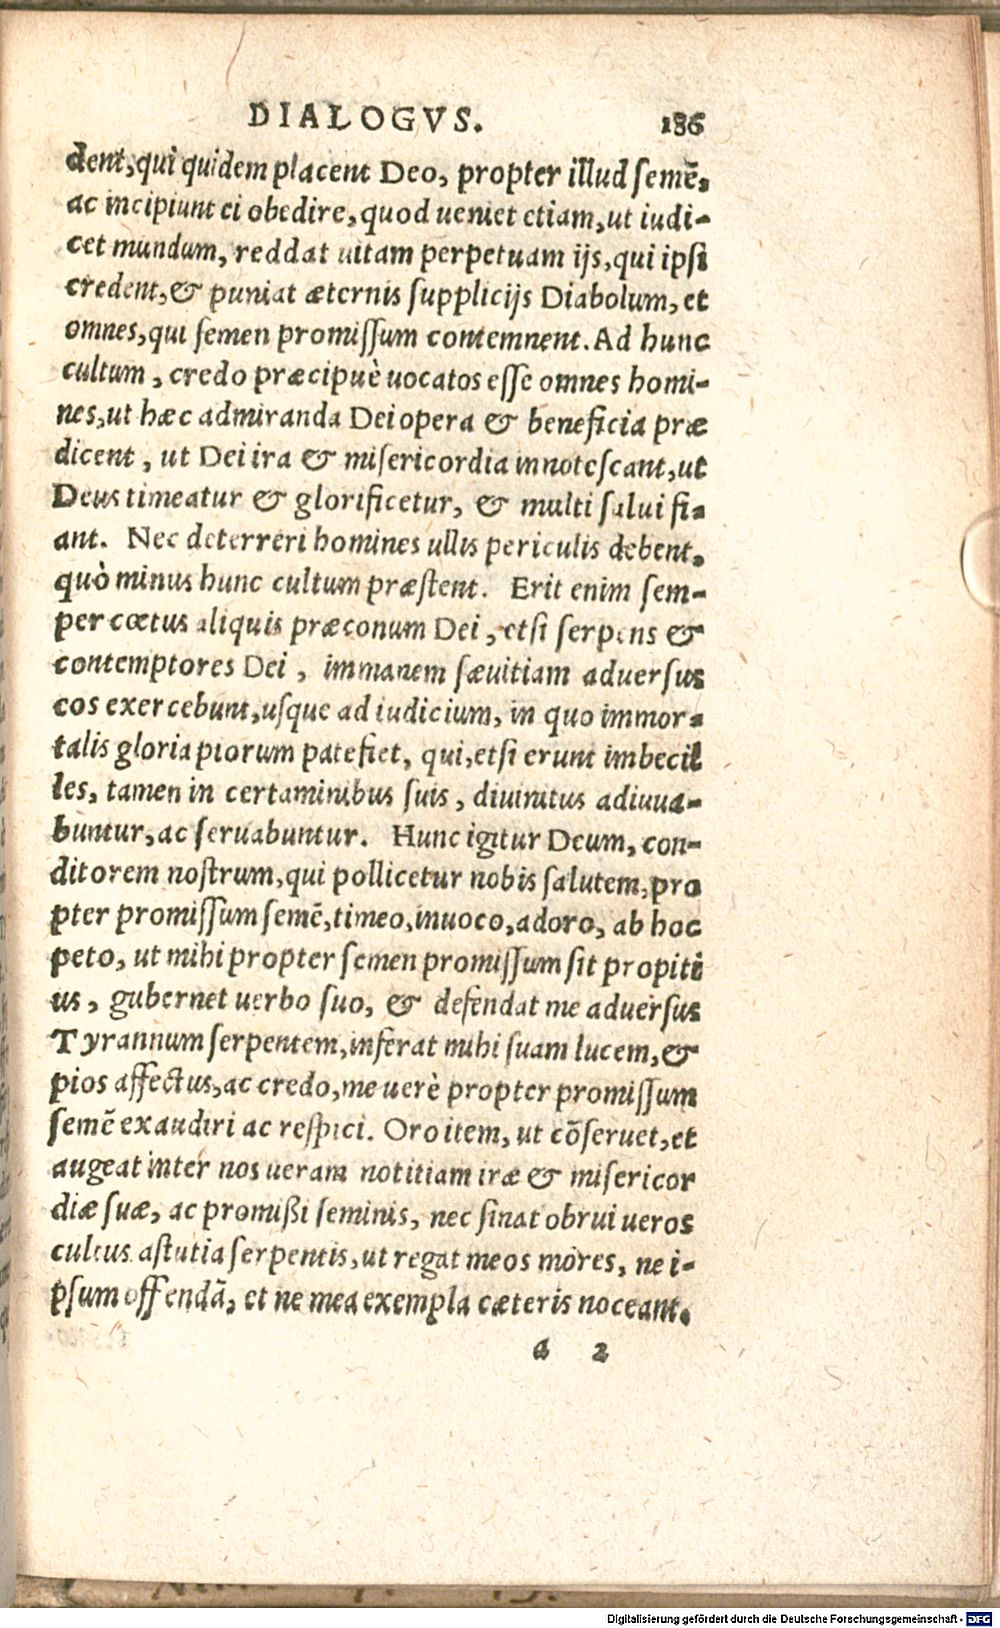 DIALOGVS. 186
dent, qui quidem placent Deo, propter illud semẽ,
ac incipiunt ei obedire, quod ueniet etiam, ut iudi-
cet mundum, reddat uitam perpetuam ijs, qui ipsi
credent, & puniat æternis supplicijs Diabolum, et
omnes, qui semen promissum contemnent. Ad hunc
cultum, credo præcipuè uocatos esse omnes homi-
nes, ut hæc admiranda Dei opera & beneficia præ
dicent, ut Dei ira & misericordia innotescant, ut
Deus timeatur & glorificetur, & multi salui fi-
ant. Nec deterreri homines ullis periculis debent,
quò minus hunc cultum præstent. Erit enim sem-
per cœtus aliquis præconum Dei, etsi serpens &
contemptores Dei, immanem sæuitiam aduersus
eos exercebunt, usque ad iudicium, in quo immor-
talis gloria piorum patefiet, qui, etsi erunt imbecil
les, tamen in certaminibus suis, diuinitus adiuua-
buntur, ac seruabuntur. Hunc igitur Deum, con-
ditorem nostrum, qui pollicetur nobis salutem, pro
pter promissum semẽ, timeo, inuoco, adoro, ab hoc
peto, ut mihi propter semen promissum sit propiti
us, gubernet uerbo suo, & defendat me aduersus
Tyrannum serpentem, inferat mihi suam lucem, &
pios affectus, ac credo, me uerè propter promissum
semẽ exaudiri ac respici. Oro item, ut cõseruet, et
augeat inter nos ueram notitiam iræ & misericor
diæ suæ, ac promißi seminis, nec sinat obrui ueros
cultus astutia serpentis, ut regat meos mores, ne i-
psum offendã, et ne mea exempla cæteris noceant.
a 2
Digitalisierung gefördert durch die Deutsche Forschungsgemeinschaft - DFG